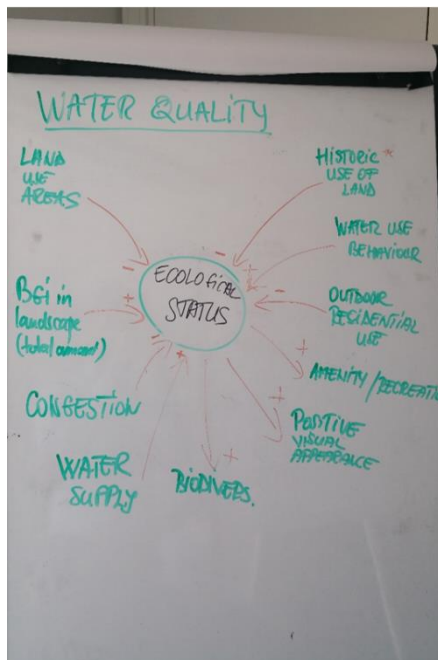 WATER QUALITY
LAND
USE
AREAS
HISTORIC *
USE OF
LAND
WATER USE
BEHAVIOUR
ECOLOGICAL
STATUS
BGI in
landscape
(total amount)
OUTDOOR
RESIDENTIAL
USE
AMENITY/RECREATI
CONGESTION
POSITIVE
VISUAL
APPEARANCE
WATER
SUPPLY
BIODIVERS.
-
-
+
-
+
-
+
-
+
+
+